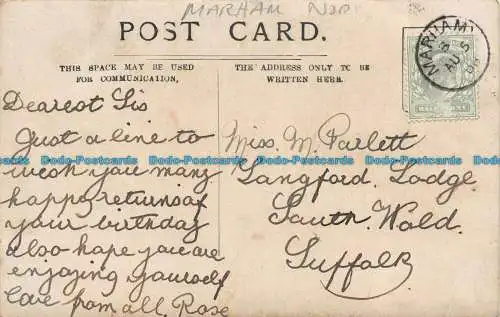 MARHAM
POST CARD.
THIS SPACE MAY BE USED
FOR COMMUNICATION.
THE ADDRESS ONLY TO BE
WRITTEN HERE.
MARHAM
Dearest Sis
Just a line to
wish you many
happy returns of
your birthday
also hope you are
enjoying yourself
love from all. Rose
Miss. M. Parlett
Langford. Lodge.
South. Wald.
Suffolk
Dodo-Postcards Dodo-Postcards Dodo-Postcards Dodo-Postcards